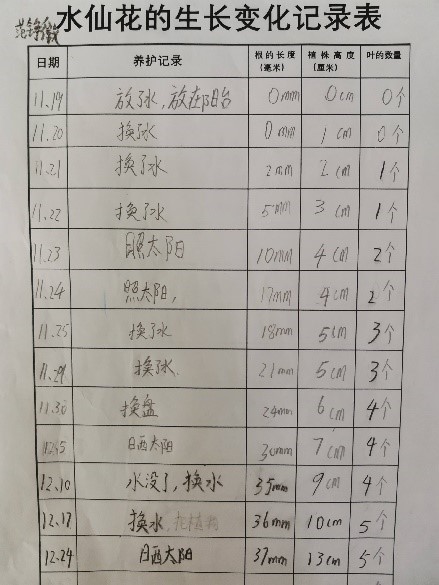 水仙花的生长变化记录表
日期 养护记录 根的长度(毫米) 植株高度(厘米) 叶的数量
11.19 放了水，放在阳台 0mm 0cm 0个
11.20 换水 0mm 1cm 0个
11.21 换了水 2mm 2cm 1个
11.22 换了水 5mm 3cm 1个
11.23 日照太阳 10mm 4cm 2个
11.24 照太阳， 17mm 4cm 2个
11.25 换了水 18mm 5cm 3个
11.29 换了水 21mm 5cm 3个
11.30 换盘 24mm 6cm 4个
日西太阳 30mm 7cm 4个
12.10 水没了，换水 35mm 9cm 4个
12.17 换水 36mm 10cm 5个
12.24 日西太阳 37mm 13cm 5个